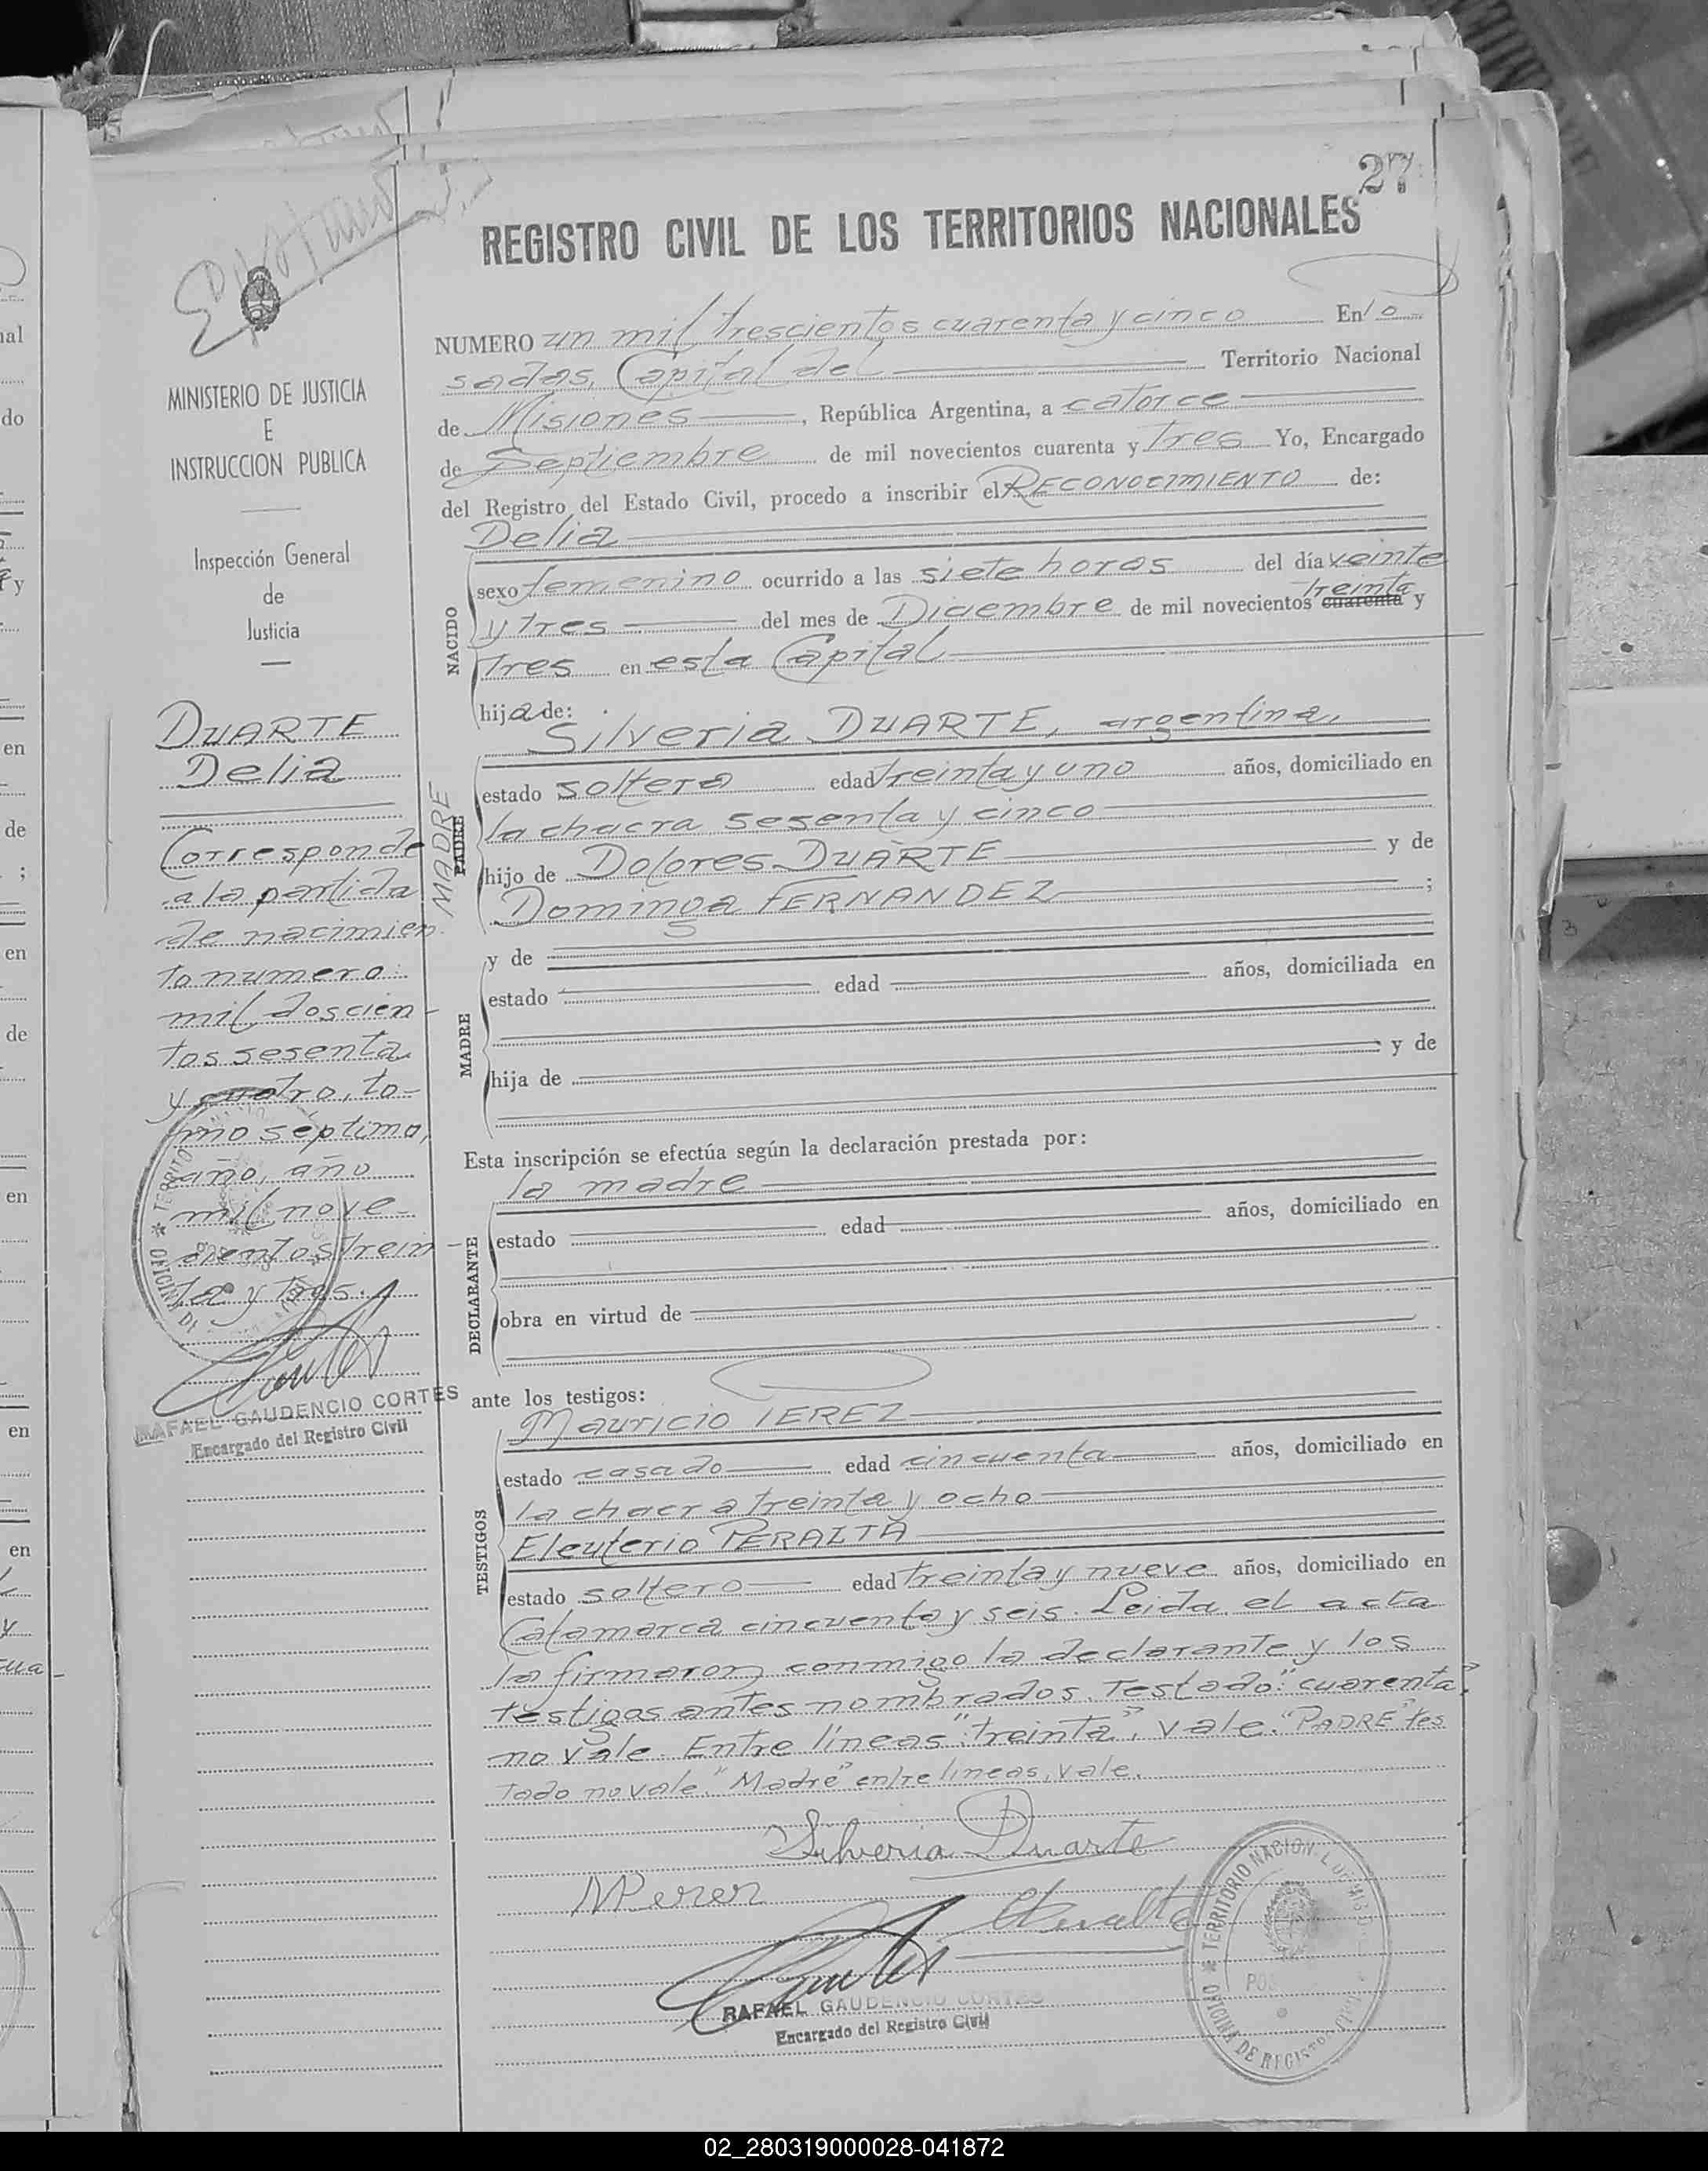 27
REGISTRO CIVIL DE LOS TERRITORIOS NACIONALES
NUMERO un mil trescientos cuarenta y cinco En
sadas, Capital del Territorio Nacional
de Misiones, República Argentina, a catorce
de Septiembre de mil novecientos cuarenta y tres Yo, Encargado
del Registro del Estado Civil, procedo a inscribir el RECONOCIMIENTO de:
Delia
NACIDO
sexo femenino ocurrido a las siete horas del día veinte
treinta
y tres del mes de Diciembre de mil novecientos cuarenta y
tres en esta Capital
hija de:
Silveria DUARTE, argentina,
MADRE
PADRE
estado soltera edad treinta y uno años, domiciliado en
la chacra sesenta y cinco
hijo de Dolores DUARTE y de
Dominga FERNANDEZ ;
MADRE
y de
estado edad años, domiciliada en
hija de y de
Esta inscripción se efectúa según la declaración prestada por:
la madre
DECLARANTE
estado edad años, domiciliado en
obra en virtud de
ante los testigos:
Mauricio PEREZ
TESTIGOS
estado casado edad cincuenta años, domiciliado en
la chacra treinta y ocho
Eleuterio PERALTA
estado soltero edad treinta y nueve años, domiciliado en
Catamarca cincuenta y seis. Leida el acta
la firmaron conmigo la declarante y los
testigos antes nombrados. Testado: "cuarenta",
no vale. Entre líneas "treinta", vale. "PADRE" tes
tado no vale. "Madre" entre lineas, vale.
Silveria Duarte
MPerez
RAFAEL GAUDENCIO CORTES
Encargado del Registro Civil
OFICINA DE REGISTRO CIVIL * TERRITORIO NACIONAL DE MISIONES
MINISTERIO DE JUSTICIA
E
INSTRUCCION PUBLICA
Inspección General
de
Justicia
DUARTE
Delia
Corresponde
a la partida
de nacimien
to numero
mil doscien-
tos sesenta
y cuatro, to-
mo séptimo,
año, año
mil nove-
cientos trein-
ta y tres.
RAFAEL GAUDENCIO CORTES
Encargado del Registro Civil
02_280319000028-041872